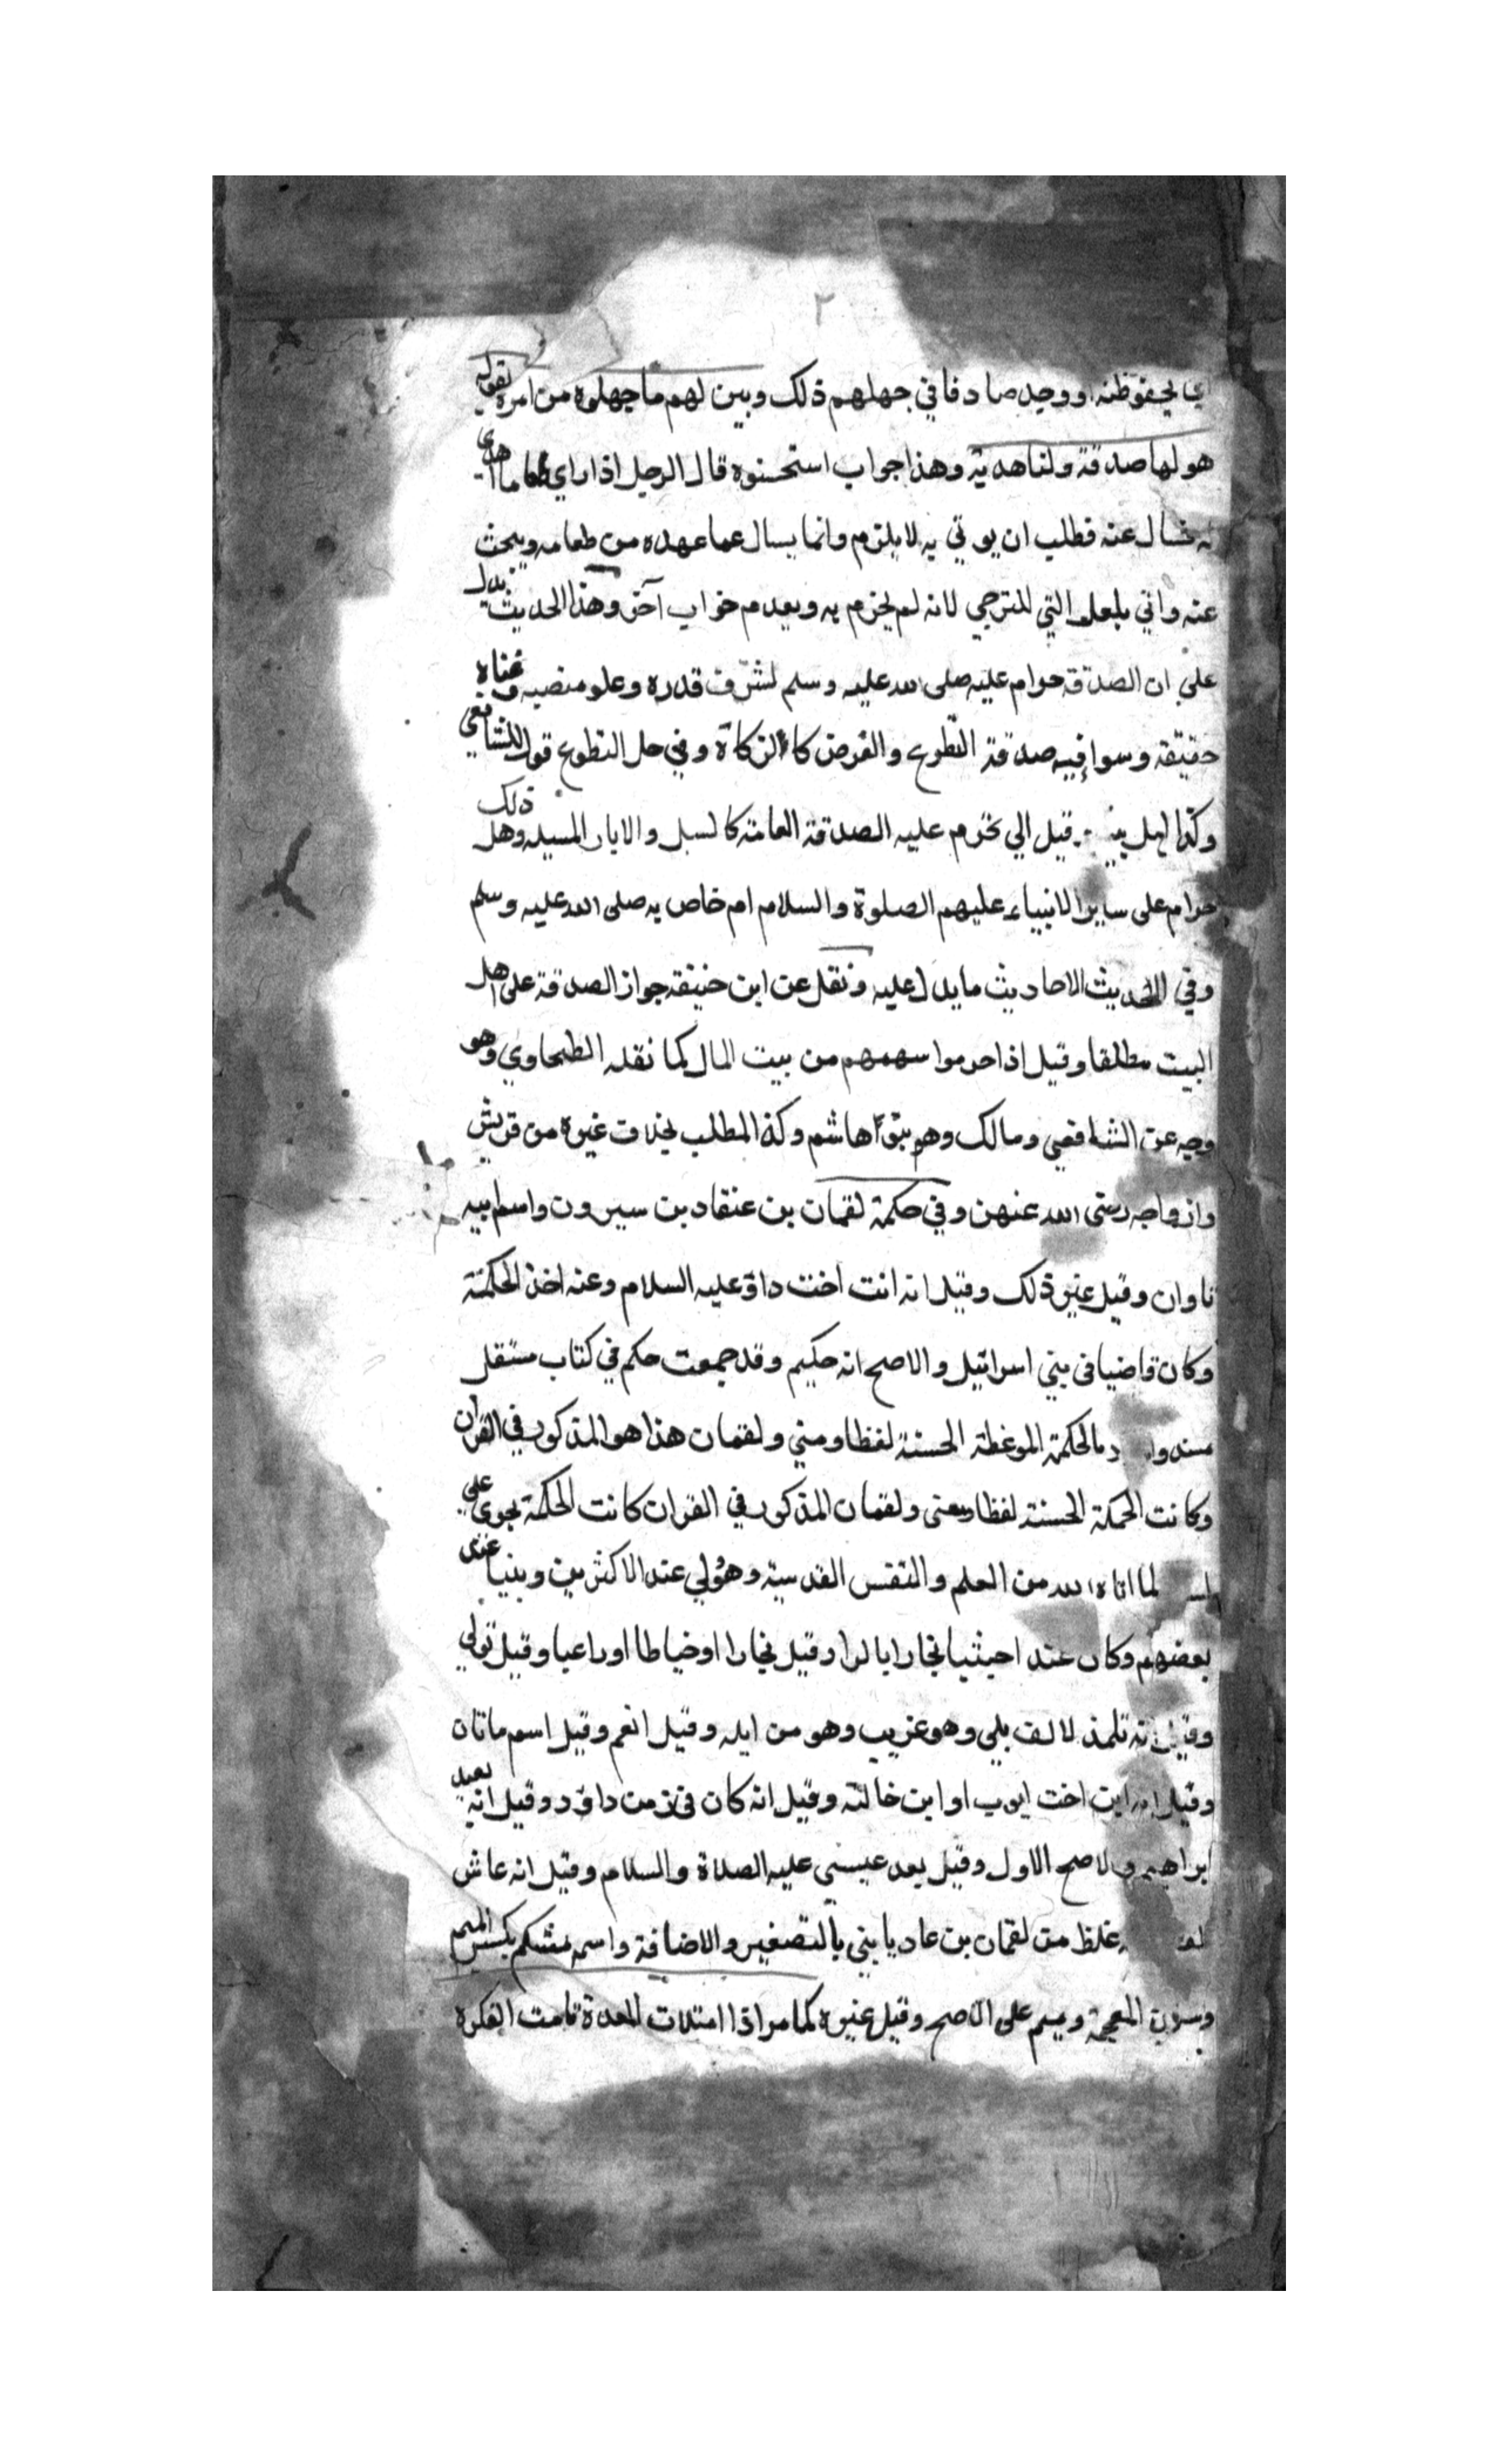 ٢
اي لحفوظنه ووجد صادفا في جهلهم ذلك وبين لهم ما جهلوه من امره بقوله
هو لها صدقة ولنا هدية وهذا جواب استحسنوه قال الرجل اذا راي طعاما اهدي
عنه فطلب ان يوتي به لا يلزم وانما يسال عما عهده من طعامه ويبحث
عنه واتي بلعله التي للترجي لانه لم يجزم به وبعدم جواب آخر وهذا الحديث يدل
علي ان الصدقة حرام عليه صلى الله عليه وسلم لشرف قدره وعلو منصبه وغناه
حقيقة وسوا فيه صدقة التطوع والفرض كالزكاة وفي حل التطوع قول للشافعي
وكذا اهل قيل الي تحرم عليه الصدقة العامة كالسبل والابار المسبله وهل ذلك
حرام على ساير الانبياء عليهم الصلوة والسلام ام خاص به صلى الله عليه وسلم
وفي الاحاديث ما يدل عليه ونقل عن ابن حنيفة جواز الصدقة على اهل
البيت مطلقا وقيل اذا حرموا سهمهم من بيت المال كما نقله الطحاوي وهو
وجه عن الشافعي ومالك وهم بنوا هاشم وكذا المطلب بخلاف غيره من قريش
وازواجه رضى الله عنهن وفي حكمة لقمان بن عنقاد بن سيرون واسم ابيه
ناوان وقيل غير ذلك وقيل انه انت اخت داود عليه السلام وعنه اخذ الحكمة
وكان قاضيا في بني اسرائيل والاصح انه حكيم وقد جمعت حكم في كتاب مستقل
بالحكمة الموعظة الحسنة لفظا ومني ولقمان هذا هو المذكور في القران
وكانت الحمكة الحسنة لفظا ومعنى ولقمان المذكور في القران كانت الحكمة تجوي علي
لما اتاه الله من العلم والنفس القدسية وهو لي عند الاكثرين ونبيا عند
بعضهم وكان عبدا حبشيا نجارا وقيل نجارا او خياطا او راعيا وقيل تولي
وقيل انه تلمذ لالف بلي وهو غريب وهو من ايله وقيل انعم وقيل اسم ماتان
وقيل انه ابن اخت ايوب او ابن خالته وقيل انه كان في زمن داود وقيل انه بعد
ابراهيم والاصح الاول وقيل بعد عيسى عليه الصلاة والسلام وقيل انه عاش
غلظ من لقمان بن عاد يا بني بالتصغير والاضافة واسمه مشكم بكسر الميم
وسون المعجمة وميم على الاصح وقيل غيره كما مر اذا امتلات المعدة نامت الفكرة